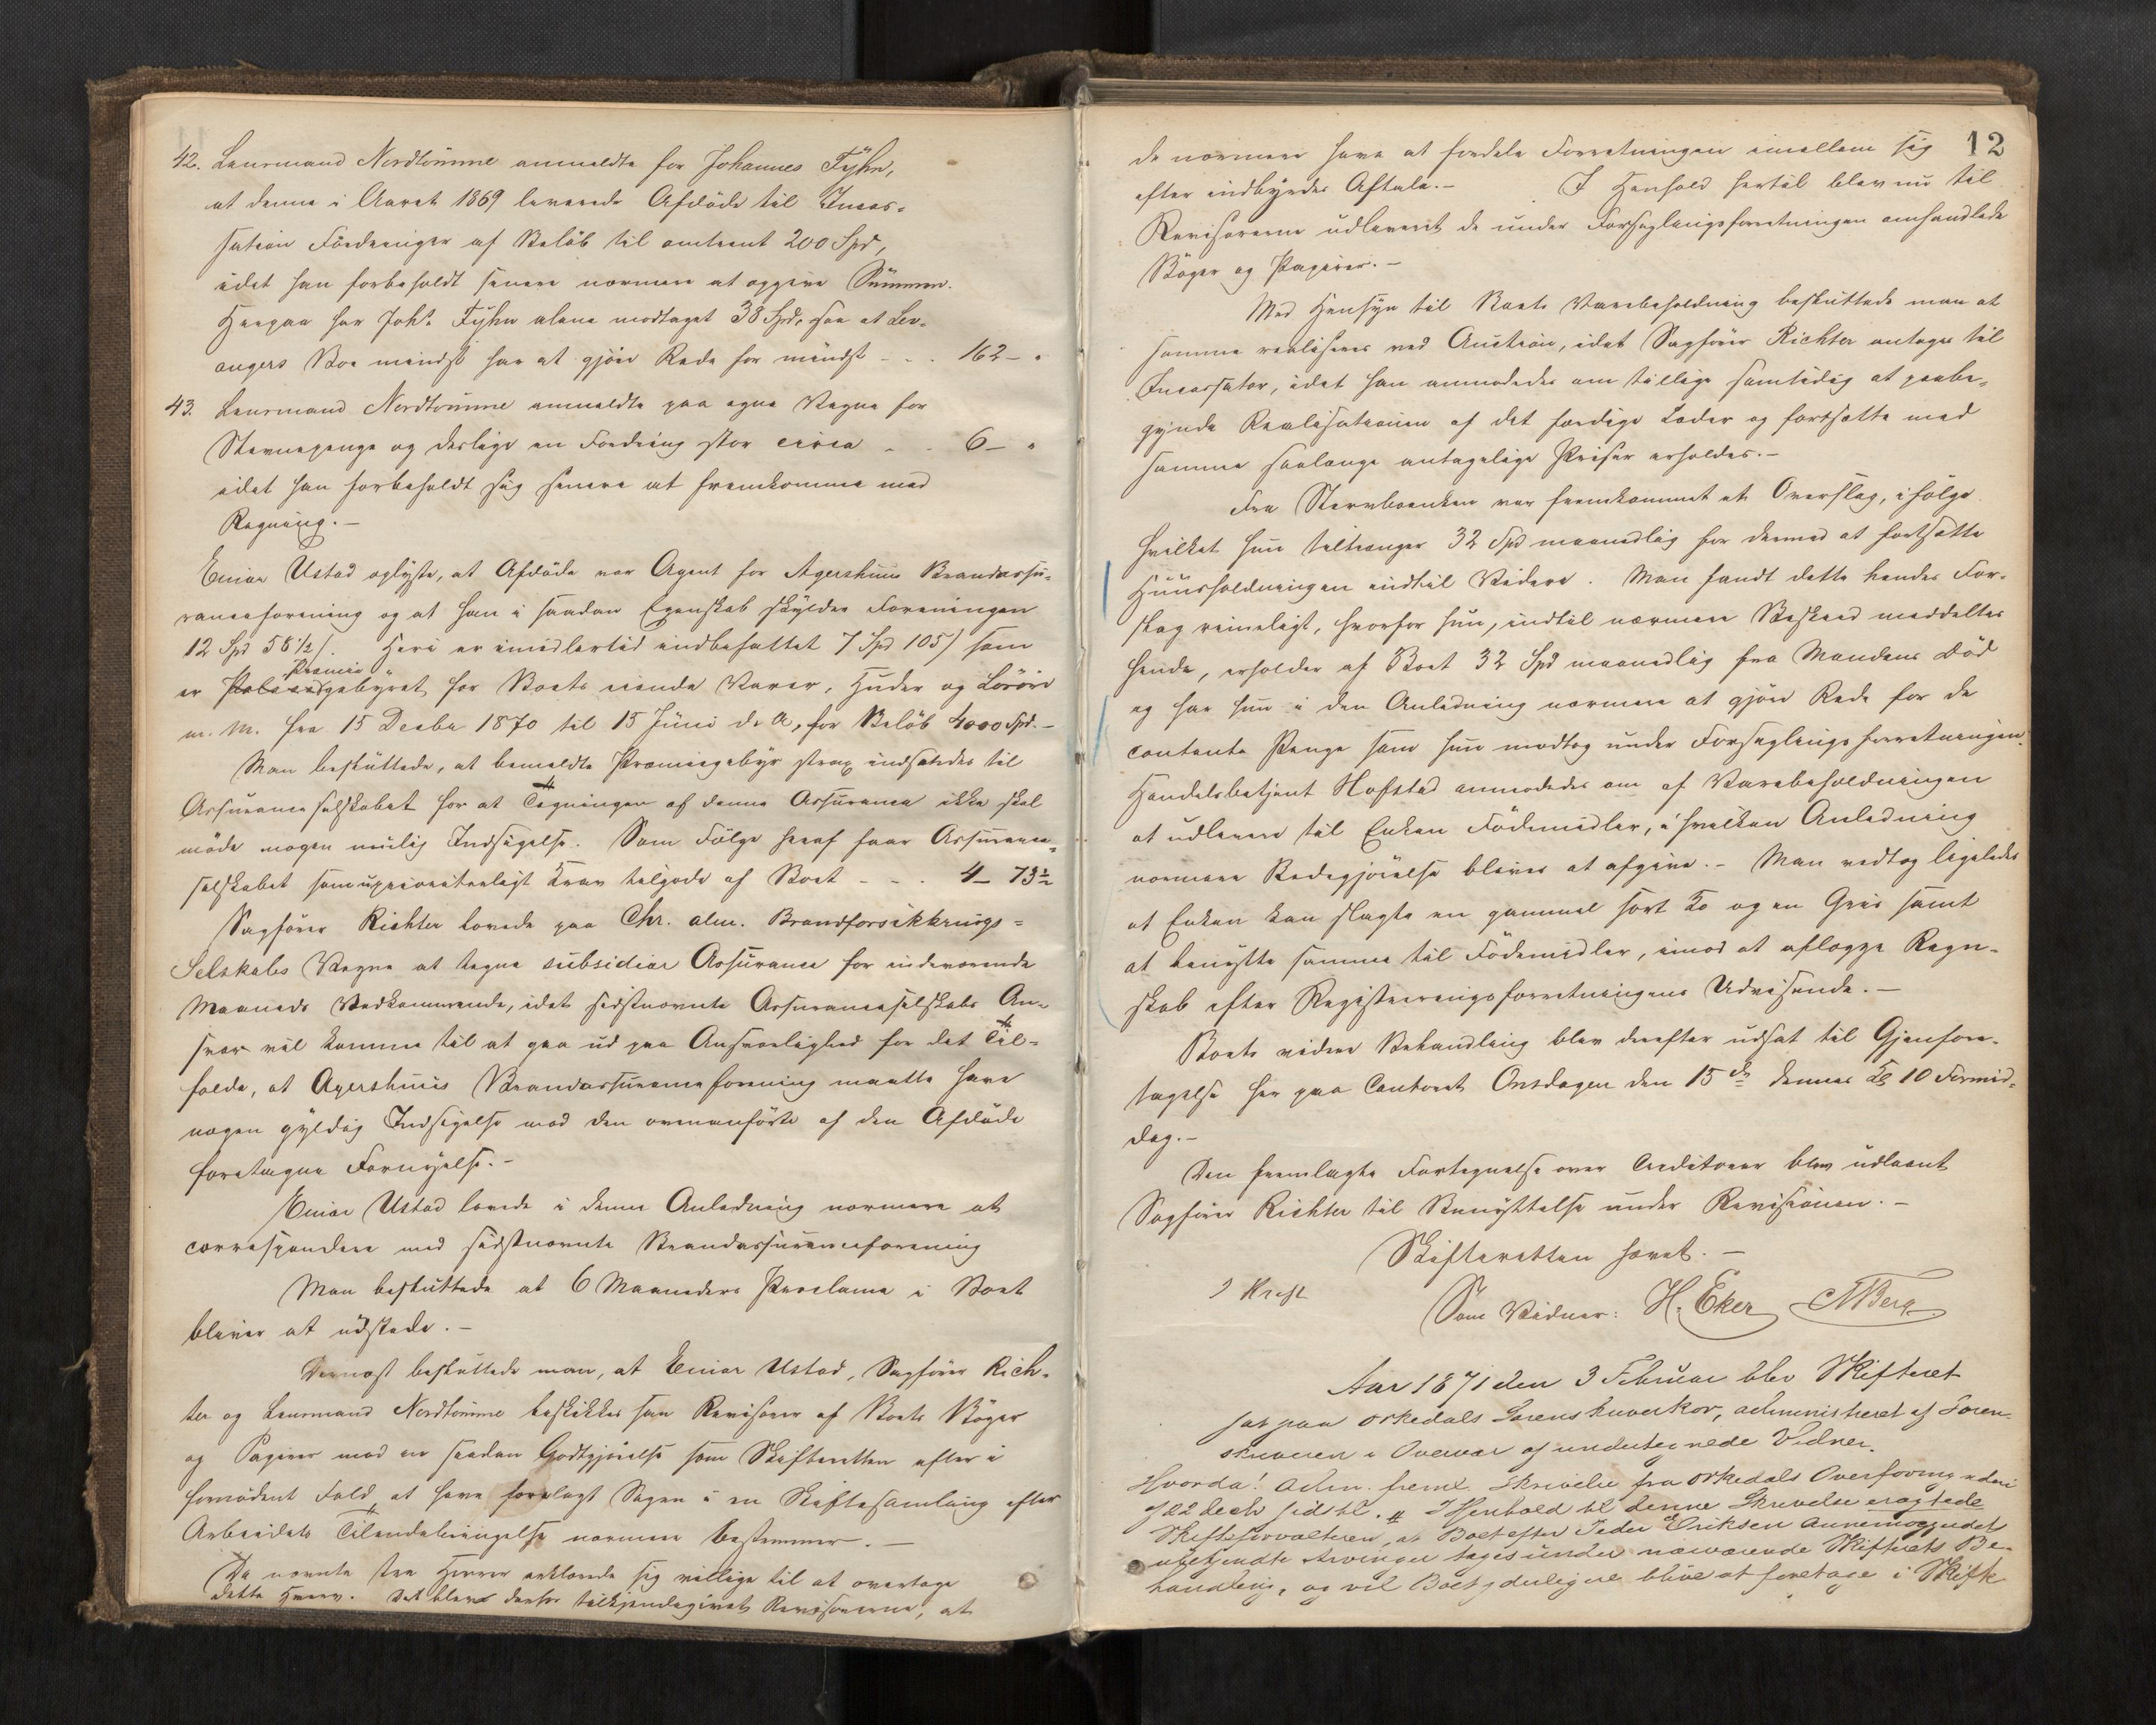 42. Lensmand Nordtømme anmeldte for Johannes Fyhn,
at denne i Aaret 1869 leverede Afdøde til Incas-
sation Fordringer af Beløb til omtrent 200 Spd,
idet han forbeholdt senere nærmere at opgive Summen.
Herpaa har Johs. Fyhn alene modtaget 38 Spd, saa at Lev-
angers Bo mindst har at gjøre Rede for mindst - - . 162 - "
43. Lensmand Nordtømme anmeldte paa egne Vegne for
Stevnepenge og deslige en Fordring stor circa - - 6 - "
idet han forbeholdt sig senere at fremkomme med
Regning. -
Einar Ustad oplyste, at Afdøde var Agent for Agershuus Brandassu-
ranceforening og at han i saadan Egenskab skylder Foreningen
12 Spd 58 1/2 /. Heri er imidlertid indbefattet 7 Spd 105 / som
Præmie
er gebyret for Boets eiende Varer, Huder og Løsøre
m. M. fra 15 Decbr 1870 til 15 Juni d. A, for Beløb 4000 Spd. -
Man besluttede, at bemeldte Præmiegebyr strax indsendes til
Assuranceselskabet for at Tegningen af denne Assurance ikke skal
møde nogen mulig Indsigelse. Som Følge heraf faar Assurance-
selskabet som uprioriteerligt Krav tilgode af Boet - - . 4 - 73 1/2
Sagfører Richter lovede paa Chr. alm. Brandforsikkrings-
Selskabs Vegne at tegne subsidiær Assurance for indeværende
Maaneds Vedkommende, idet sidstnævnte Assuranceselskabs An-
svar vil komme til at gaa ud paa Ansvarlighed for det Til-
fælde, at Agershuus Brandassuranceforening maatte have
nogen gyldig Indsigelse mod den ovenanførte af den Afdøde
foretagne Fornyelse. -
Einar Ustad lovede i denne Anledning nærmere at
correspondere med sidstnævnte Brandassuranceforening
Man besluttede at 6 Maaneders Proclama i Boet
bliver at udstede. -
Dernæst besluttede man, at Einar Ustad, Sagfører Rich-
ter og Lensmand Nordtømme beskikkes som Revisorer af Boets Bøger
og Papirer mod en saadan Godtgjørelse som Skifteretten efter i
fornødent Fald, at have forelagt Sagen i en Skiftesamling efter
Arbeidets Tilendebringelse nærmere bestemmer. -
De nævnte tre Herrer erklærede sig villige til at overtage
dette Hverv. Det blev derfor tilkjendegivet Revisorerne, at
12
de nærmere have at fordele Forretningen imellem sig
efter indbyrdes Aftale. - I Henhold hertil blev nu til
Revisorerne udleveret de under Forseglingsforretningen omhandlede
Bøger og Papirer. -
Med Hensyn til Boets Varebeholdning besluttede man at
samme realiseres ved Auction, idet Sagfører Richter antages til
Incassator, idet han anmodedes om tillige samtidig at paabe-
gynde Realisationen af det færdige Læder og fortsætte med
samme saalænge antagelige Priser erholdes. -
Fra Stervboenken var fremkommet et Overslag, ifølge
hvilket hun tiltrænger 32 Spd maanedlig for dermed at fortsætte
Huusholdningen indtil Videre. Man fandt dette hendes For-
slag rimeligt, hvorfor hun, indtil nærmere Beskeed meddeltes
hende, erholder af Boet 32 Spd maanedlig fra Mandens Død
og har hun i den Anledning nærmere at gjøre Rede for de
contante Penge som hun modtog under Forseglingsforretningen.
Handelsbetjent Hofstad anmodedes om af Varebeholdningen
at udlevere til Enken Fødemidler, i hvilken Anledning
nærmere Redegjørelse bliver at afgive. - Man vedtog ligeledes
at Enken kan slagte en gammel sort Ko og en Gris samt
at benytte samme til Fødemidler, imod at aflægge Regn-
skab efter Registreringsforretningens Udvisende. -
Boets videre Behandling blev derefter udsat til Gjenfore-
tagelse her paa Contoret Onsdagen den 15de dennes Kl 10 Formid-
dag. -
Den fremlagte Fortegnelse over Creditorer blev udlaant
Sagfører Richter til Benyttelse under Revisionen. -
Skifteretten hævet. -
J Krest
Som Vidner: H. Eker CNBerg
Aar 1871 den 3 Februar blev Skifteret
sat paa Orkedals Sorenskriverkor, administreret af Soren-
skriveren i Overvær af undertegnede Vidner.
Hvorda! Adm. freml. Skrivelse fra Orkedals Overformynderi
af 22 decbr sidstl. # I Henhold til denne Skrivelse eragtede
Skifteforvalteren, at Boet efter Peder Eriksen
ubekjendte Arvinger tages under nærværende Skifterets Be-
handling, og vil Boet blive at foretage i Skifte